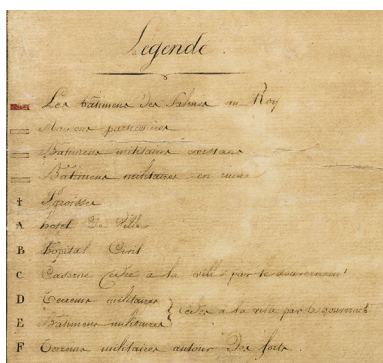 Legende.
Les bâtimens des Salines au Roy
Maisons particulieres
Bâtimens militaires existans
Bâtimens militaires en ruine
†
A hotel De Ville
B hopital Civil
C Caserne Cédée a la ville par le Gouvernement
D Terreins militaires
E Bâtimens militaires } Cédés a la ville par le Gouvernemt
F Terreins militaires autour Des forts.